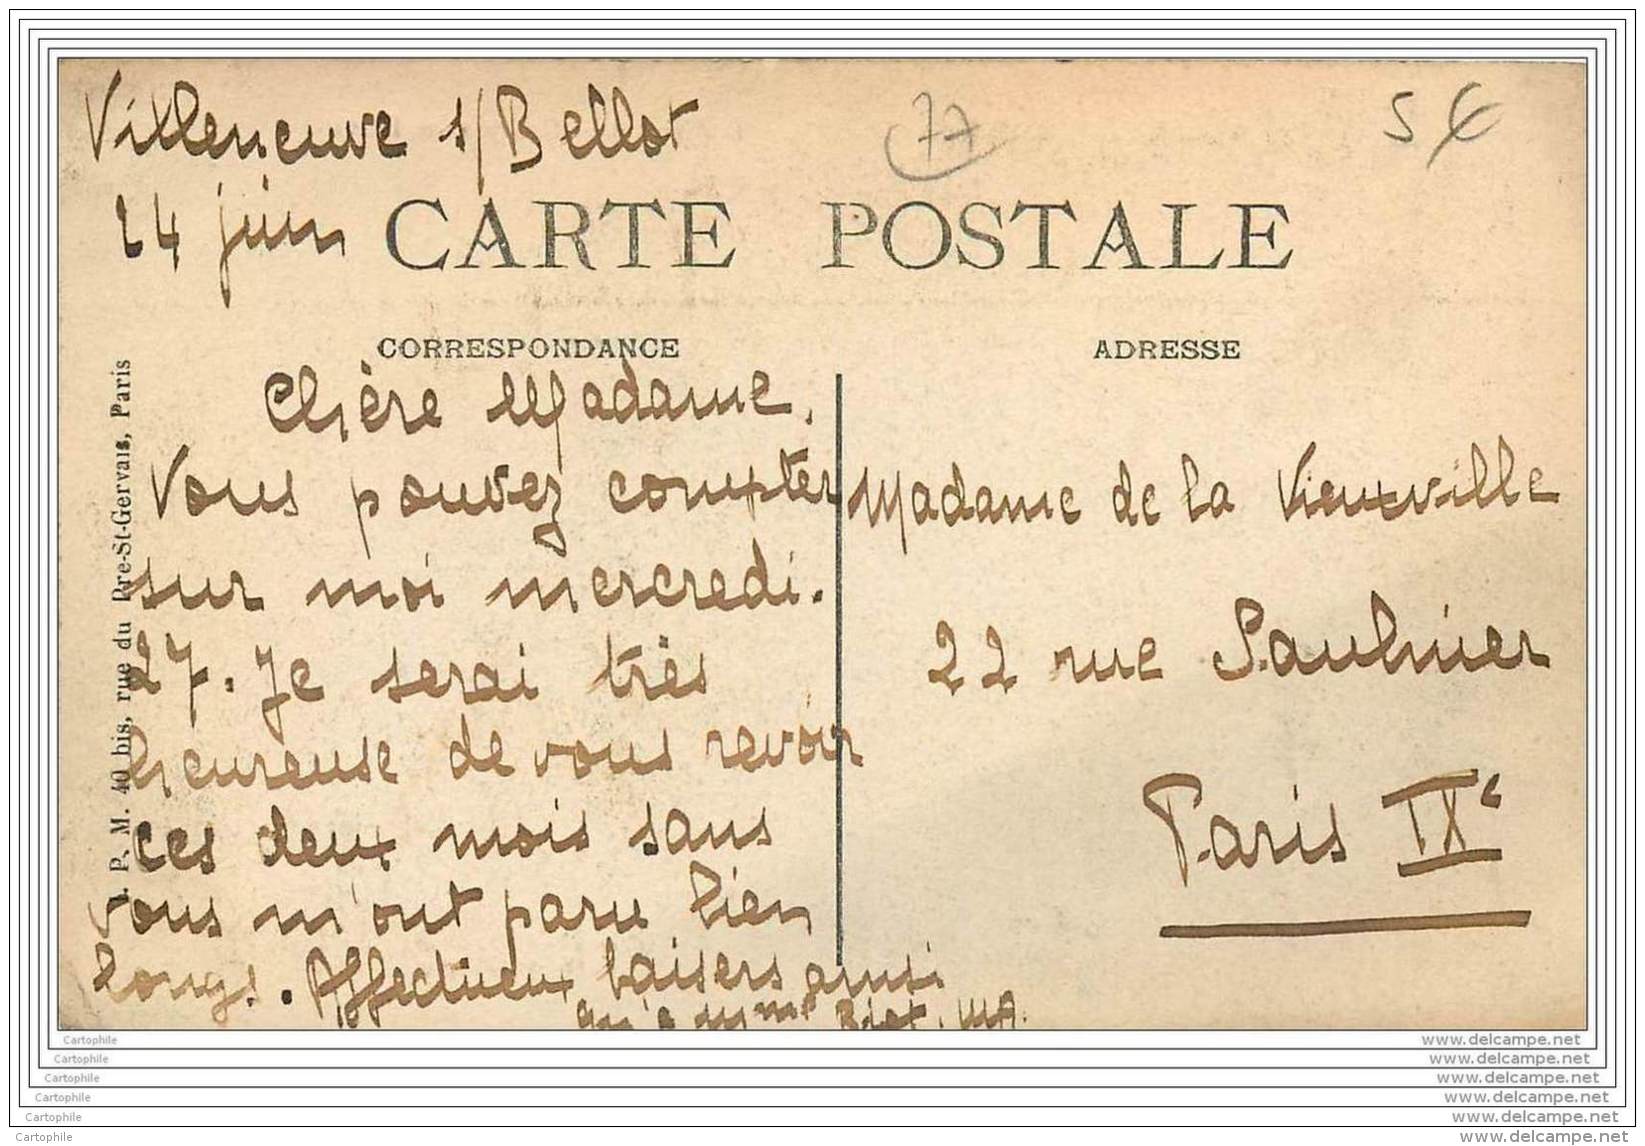 Villeneuve s/Bellot
77
5 €
24 juin
CARTE POSTALE
CORRESPONDANCE
ADRESSE
Chère Madame,
Vous pouvez compter
sur moi mercredi.
27. Je serai très
heureuse de vous revoir
ces deux mois sans
vous m'ont paru bien
longs. Affectueux baisers ainsi
qu'à
Madame de la Vieuxville
22 rue Saulnier
Paris IXe
P. M. 40 bis, rue du Pre-St-Gervais, Paris
Cartophile
Cartophile
Cartophile
Cartophile
Cartophile
Cartophile
www.delcampe.net
www.delcampe.net
www.delcampe.net
www.delcampe.net
www.delcampe.net
www.delcampe.net